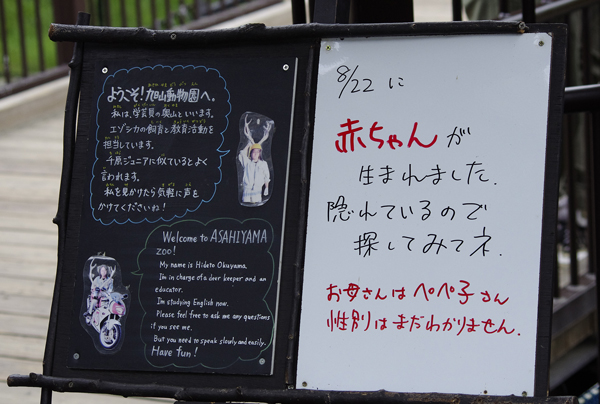 ようこそ!旭山動物園へ。
私は、学芸員の奥山といいます。
エゾシカの飼育と教育活動を
担当しています。
千原ジュニアに似ているとよく
言われます。
私を見かけたら気軽に声を
かけてくださいね!
Welcome to ASAHIYAMA
zoo!
My name is Hideto Okuyama.
Im in charge of a deer keeper and an
educator.
Im studying English now.
Please feel free to ask me any questions
if you see me.
But you need to speak slowly and easily.
Have fun!
8/22 に
赤ちゃんが
生まれました.
隠れているので
探してみてネ.
お母さんは ペペ子さん
性別はまだわかりません.